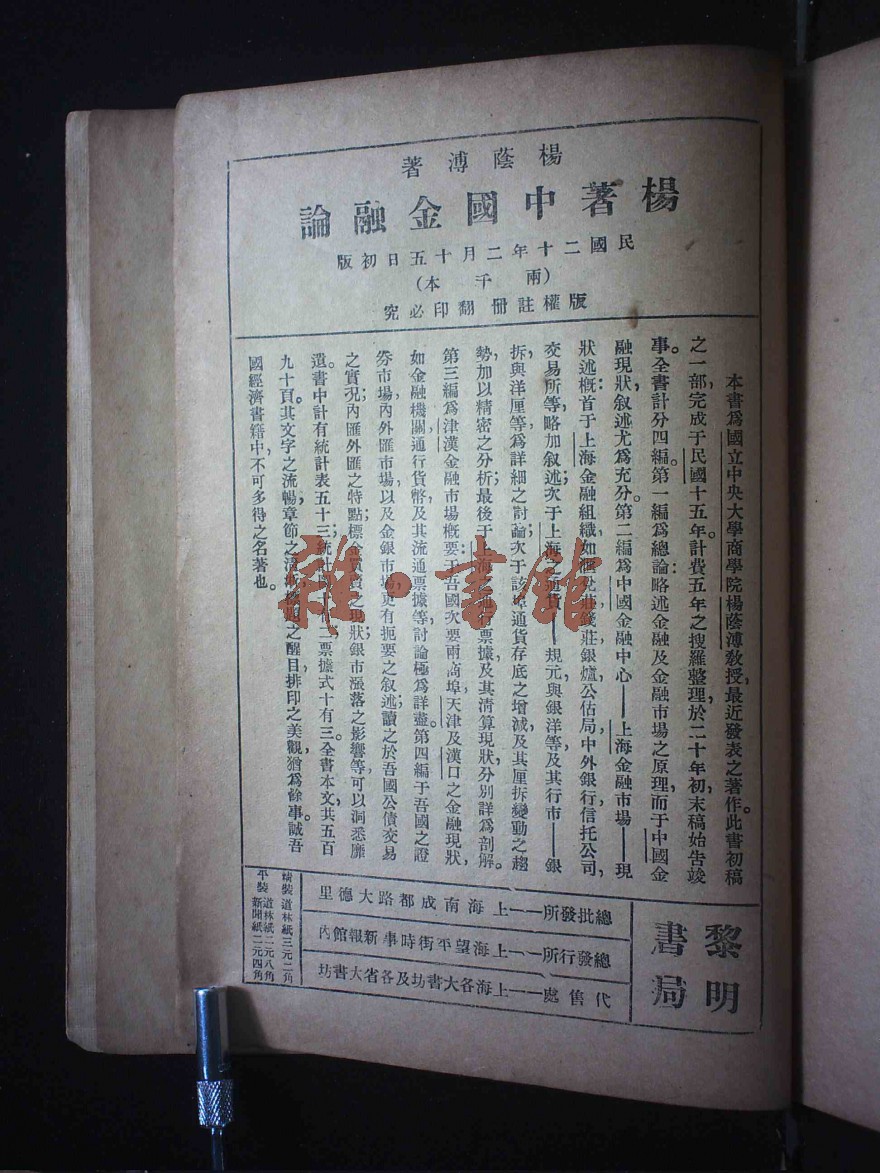 楊蔭溥著
楊著中國金融論
民國二十年二月十五日初版
(兩千本)
版權註冊 翻印必究
本書爲國立中央大學商學院楊蔭溥敎授，最近發表之著作。此書初稿
之一部，完成于民國十五年。計費五年之搜羅整理，於二十年初，末稿始告竣
事。全書計分四編。第一編爲總論：略述金融及金融市場之原理，而于中國金
融現狀，叙述尤爲充分。第二編爲中國金融中心——上海金融市場——現
狀述槪：首于上海金融組織，如匯兌莊，錢莊，銀爐，公估局，中外銀行，信托公司，
交易所等，略加叙述；次于上海之通貨——規元與銀洋等及其行市——銀
拆與洋厘等，爲詳細之討論；次于該埠通貨存底之增減，及其厘拆變動之趨
勢，加以精密之分析；最後于上海之通行票據，及其淸算現狀，分別詳爲剖解。
第三編爲津漢金融市場槪要：于吾國次要兩商埠，天津及漢口之金融現狀，
如金融機關，通行貨幣，及其流通票據等，討論極爲詳盡。第四編于吾國之證
券市場，內外匯市場，以及金銀市場，更有扼要之叙述；讀之於吾國公債交易
之實況；內匯外匯之特點；標金買賣之現狀；銀市漲落之影響等，可以洞悉靡
遺。書中計有統計表五十三；統計圖二；票據式十有三。全書本文，共五百
九十頁。其文字之流暢，章節之淸，標題之醒目，排印之美觀，猶爲餘事。誠吾
國經濟書籍中，不可多得之名著也。
雜·書館
黎明
書局
總批發所——上海南成都路大德里
總發行所——上海望平街時事新報館內
代售處——上海各大書坊及各省大書坊
精裝 道林紙三元二角
平裝 道林紙二元八角
新聞紙二元四角